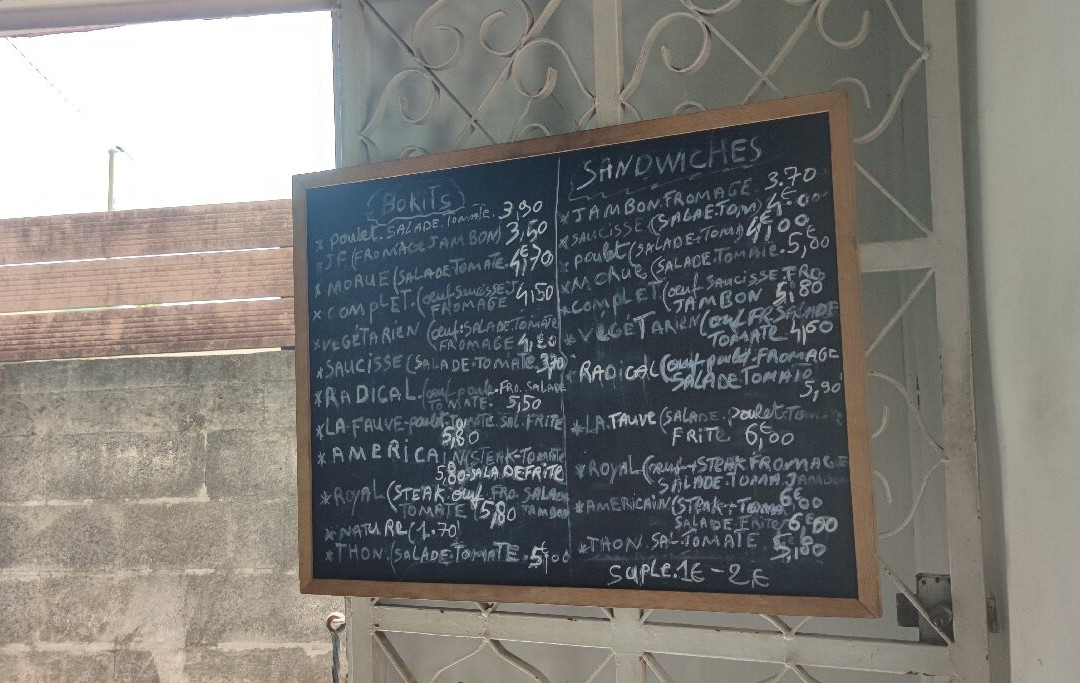 BOKITS
* poulet.SALADE.TOMATE. 3,90
* JF (FROMAGE JAMBON) 3,50
* MORUE (SALADE.TOMATE. 4,70
* COMPLET.(oeuf.Saucisse.J
FROMAGE 4,50
* VEGÉTARIEN (oeuf.SALADE.TOMATE
FROMAGE
* SAUCISSE (SALADE-TOMATE.
* RADICAL (oeuf poulet.FRO.SALADE
TOMATE. 5,50
* LA FAUVE-poulet.TOMATE.SAL.FRITE
5,80
* AMERICAIN (STEAK-TOMATE
5,80-SALADE FRITE
* ROYAL (STEAK.oeuf.FRO.SALADE
TOMATE 5,80 JAMBON
* NATURE (1.70)
* THON.(SALADE.TOMATE. 5€00
SANDWICHES
* JAMBON.FROMAGE. 3.70
* SAUCISSE (SALADE.TOM) 4€00
* poulet (SALADE-TOM) 4€00
* MORUE (SALADE.TOMATE. 5,80
* COMPLET (oeuf SAUCISSE FRO
JAMBON 5,80
* VEGÉTARIEN (oeuf FR.SALADE
TOMATE 4,60
* RADICAL (oeuf poulet.FROMAGE
SALADE TOMATO
5,90
* LA FAUVE (SALADE.poulet-Tom
FRITE 6€,00
* ROYAL (oeuf+STEAK FROMAGE
SALADE.TOMA.JAMBON
6€00
* AMERICAIN (STEAK-TOMA
SALADE.FRITE 6€00
* THON.SAL.TOMATE
5,80
Suple.1€-2€